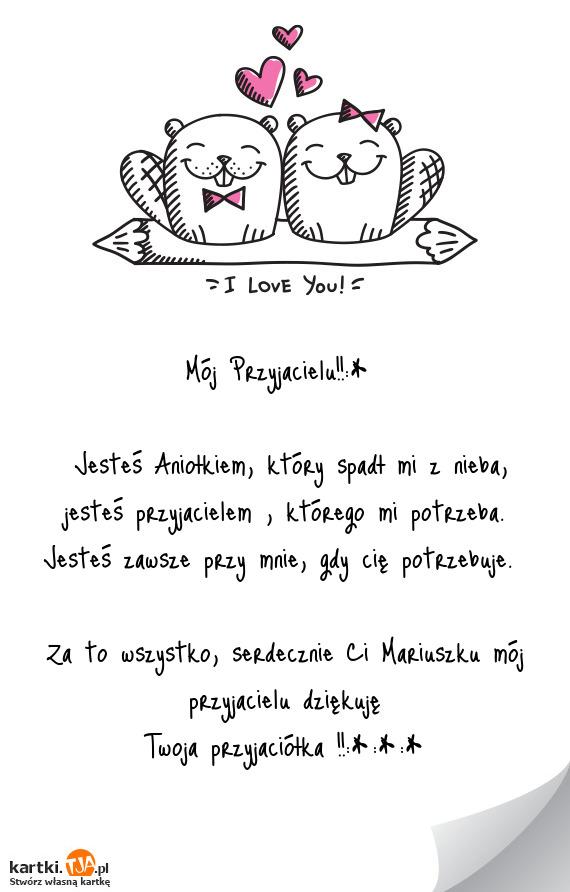 I LOVE YOU!
Mój Przyjacielu!!:*
Jesteś Aniołkiem, który spadł mi z nieba,
jesteś przyjacielem , którego mi potrzeba.
Jesteś zawsze przy mnie, gdy cię potrzebuje.
Za to wszystko, serdecznie Ci Mariuszku mój
przyjacielu dziękuję
Twoja przyjaciółka !!:* :* :*
kartki.TJA.pl
Stwórz własną kartkę